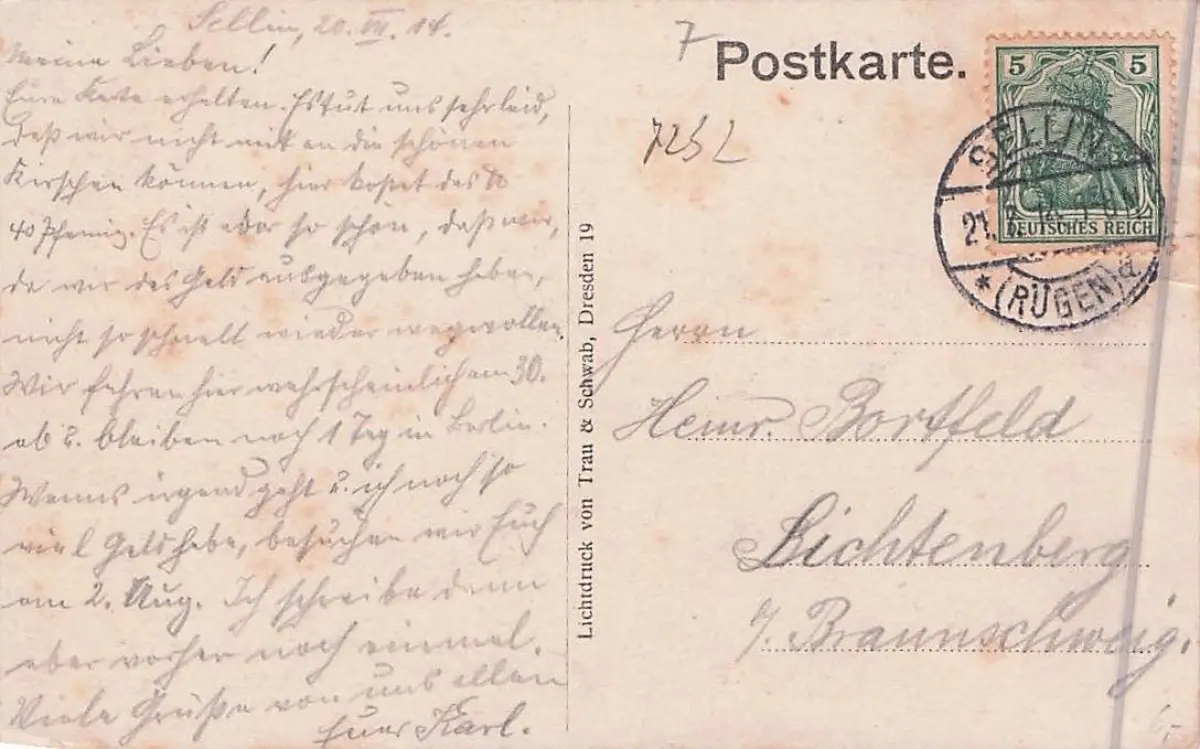 Sellin, 20. VII. 14.
Meine Lieben!
Eure Karte erhalten. Es tut uns sehr leid,
daß wir nicht mit an die schönen
Kirschen können, hier kostet das ℔
40 Pfennig. Es ist aber so schön, daß wir,
da wir das Geld ausgegeben haben,
nicht so schnell wieder wegwollen.
Wir fahren hier wahrscheinlich am 30.
ab u. bleiben noch 1 Tag in Berlin.
Wenns irgend geht u. ich noch so
viel Geld habe, besuchen wir Euch
am 2. Aug. Ich schreibe dann
aber vorher noch einmal.
Viele Grüße von uns allen
Euer Karl.
Lichtdruck von Trau & Schwab, Dresden 19
7
Postkarte.
7252
5 5
DEUTSCHES REICH
SELLIN
21. 7. 14.
* (RÜGEN) a
Herrn
Heinr. Bortfeld
Lichtenberg
/. Braunschweig.
6,-